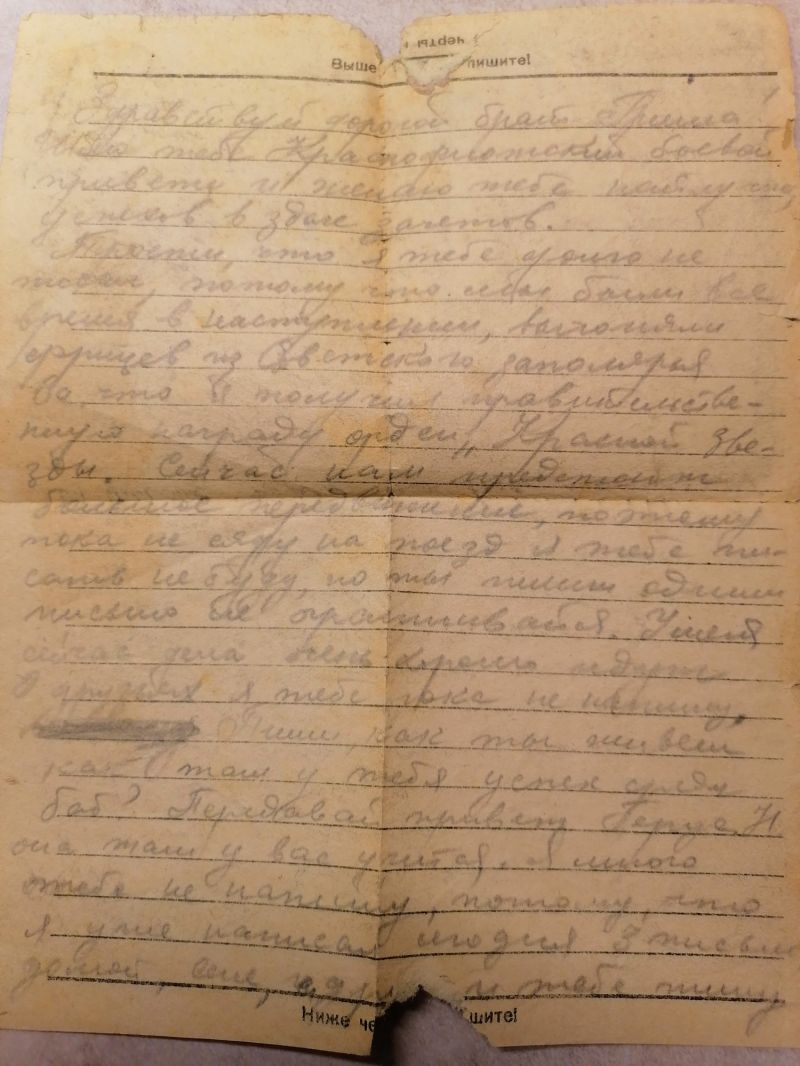 черты
Выше пишите!
Здравствуй дорогой брат Гриша!
Шлю тебе Краснофлотский боевой
привет и желаю тебе наилучш,
успехов в здаче зачетов.
Прости, что я тебе долго не
писал, потому что мы были все
время в наступлении, выгоняли
фрицев из Советского заполярья
За что я получил правительстве-
нную награду орден „Красной зве-
зды. Сейчас нам предстоит
большое передвижение, поэтому
пока не сяду на поезд я тебе пи-
сать не буду, но ты пиши одним
письмо не ограничивайся. У меня
сейчас дела очень хорошо идут
О друзьях я тебе пока не напишу,
Пиши, как ты живеш
как там у тебя успех среди
баб? Передавай привет Н.
она там у вас учится. Я много
тебе не напишу, потому, что
я уже написал сегодня 3 письма
домой, и тебе пишу
Ниже че шите!